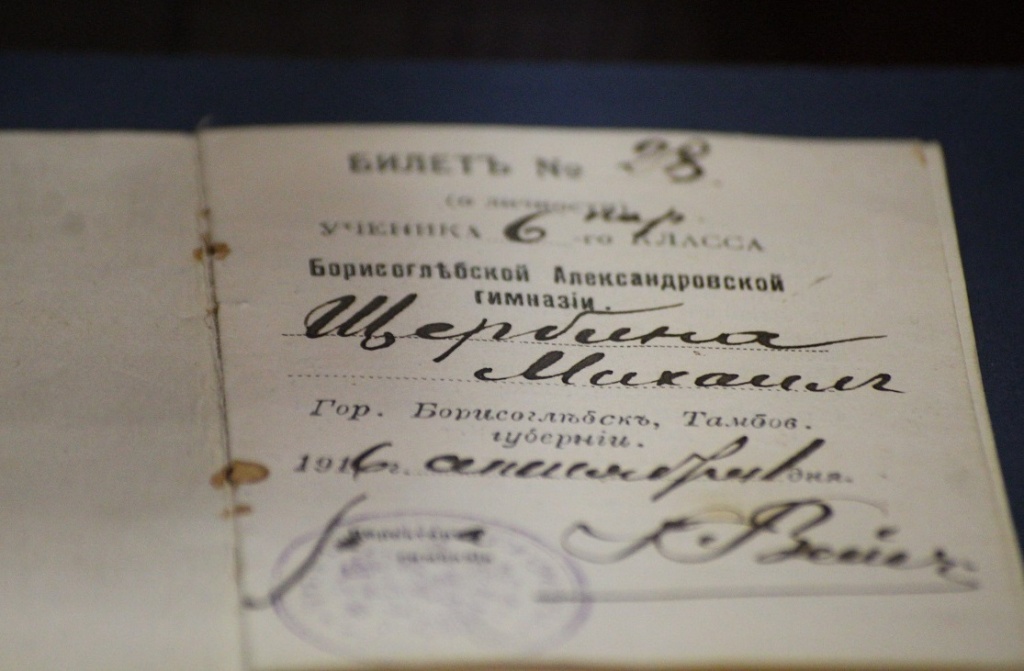 БИЛЕТЪ № 98
(о личности)
УЧЕНИКА 6 пар. -го КЛАССА
Борисоглѣбской Александровской
гимназіи.
Щербина
Михаилъ
Гор. Борисоглѣбскъ, Тамбов.
губерніи.
1916 г. сентября 1 дня.